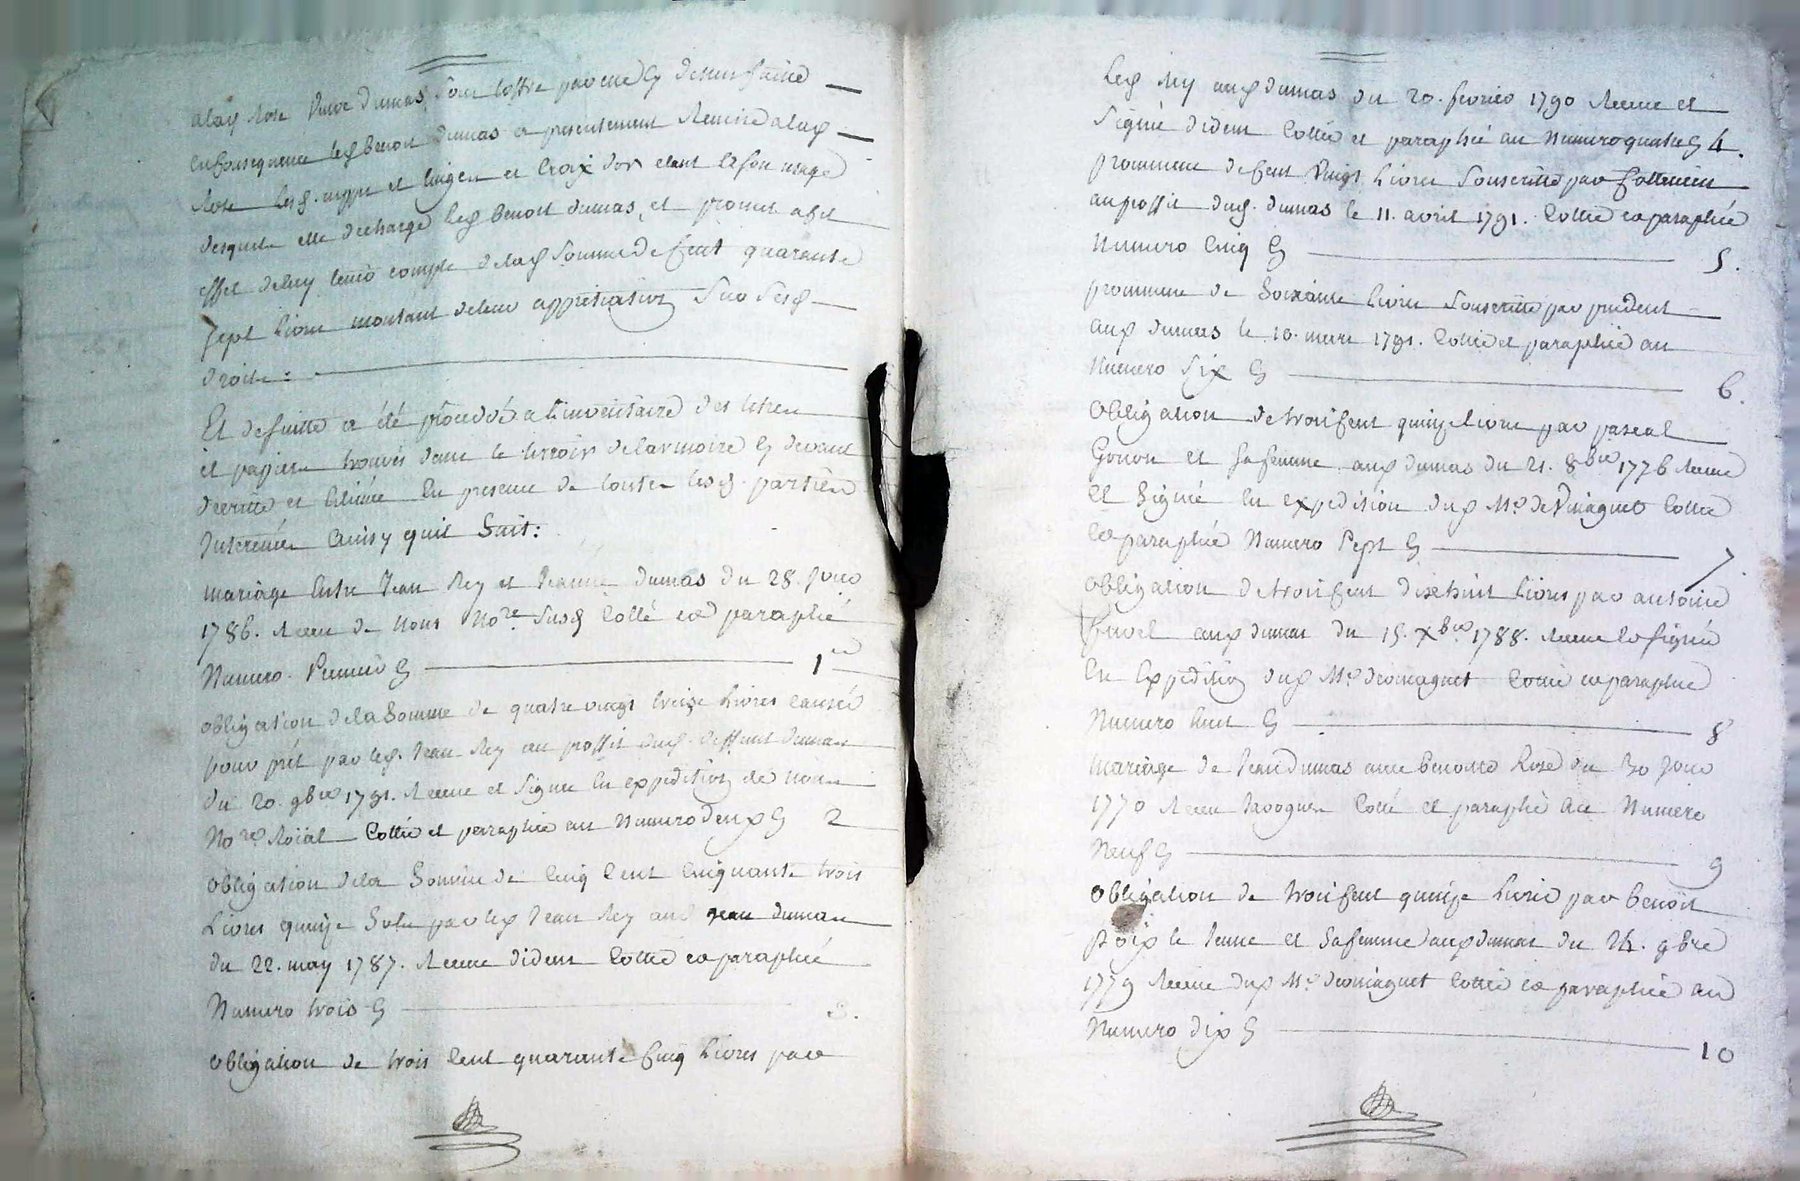 alad. Rose veuve dumas, pour l'offre par eux cy dessus faitte
en Consequence led. benoit dumas a presentement Remis alad.
Rose lesd. nippes et linges et Croix d'or etant a son usage
desquels elle decharge led. benoit dumas, et promet a cet
effet de luy tenir compte de lad. Somme de Cent quarante
Sept livres montant de leur appretiation Sur Sesd.
droits:
Et de suitte a été procédé a l'inventaire des titres
et papiers trouvés dans le tiroir de l'armoire cy devant
decritte et en presence de toutes lesd. parties
Interessées Ainsy quil Suit:
mariage Entre Jean Rey et Jeanne dumas du 28. Janv
1786. Receu de Nous Nore. Susd. Cotté et paraphé
Numero. Premier cy 1er
obligation de la Somme de quatre vingt treize Livres causée
pour prêt par led. Jean Rey au proffit dud. deffunt dumas
du 20. 9bre 1791. Receue et Signée En expedition de nous
Nore. Roïal Cottée et paraphée au Numero deux cy 2
obligation dela Somme de Cinq Cent Cinquante trois
Livres quinze Sols par led. Jean Rey aud. Jean dumas
du 22. may 1787. Receue didem Cottée et paraphée
Numero trois cy 3.
obligation de trois Cent quarante Cinq Livres par
led. Rey aud. dumas du 20. fevrier 1790 Receue et
Signée didem Cottée et paraphée au Numero quatre cy 4.
promesse de Cent Vingt Livres Souscritte par
au proffit dud. dumas le 11. avril 1791. Cottée et paraphée
Numero Cinq cy 5.
promesse de Soixante Livres Souscritte par prudent
aud. dumas le 10. mars 1791. Cottée et paraphée au
Numero Six cy 6.
Obligation de trois Cent quinze Livres par pascal
Gonon et Sa femme aud. dumas du 21. 8bre 1776 Receue
et Signée En expedition dud. Me. Cottée
et paraphée Numero Sept cy 7.
obligation de trois Cent dix huit Livres par antoine
aud. dumas du 15. Xbre 1788. Receue et Signée
En Expedition dud. Me. Cottée et paraphée
Numero huit cy 8
mariage de Jean dumas avec benoitte Rose du 30 Janv
1770 Receu Cotté et paraphé au Numero
Neuf cy 9
obligation de trois Cent quinze Livres par benoit
le Jeune et Sa femme aud. dumas du 24. 9bre
1779 Receue dud. Me. Cottée et paraphée au
Numero dix cy 10